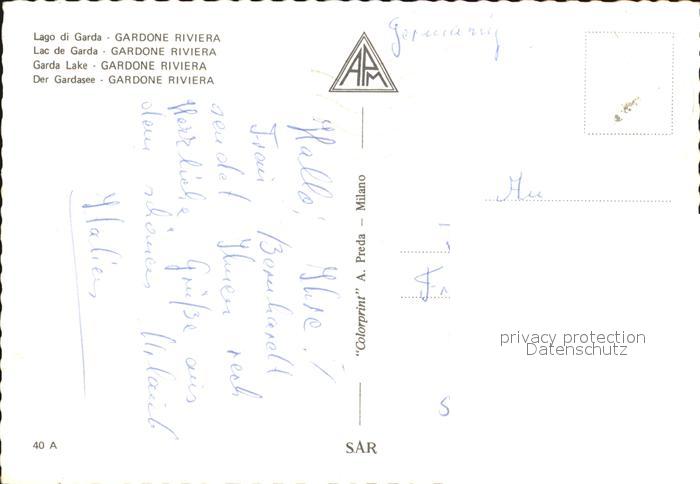 Lago di Garda - GARDONE RIVIERA
Lac de Garda - GARDONE RIVIERA
Garda Lake - GARDONE RIVIERA
Der Gardasee - GARDONE RIVIERA
APM
Germania
Hallo! Ihre
Frau Bornhardt
sendet Ihnen rech
Herzliche Grüße aus
dem schönen Urlaub
Italien
"Colorprint" A. Preda – Milano
An
privacy protection
Datenschutz
S
40 A
SAR